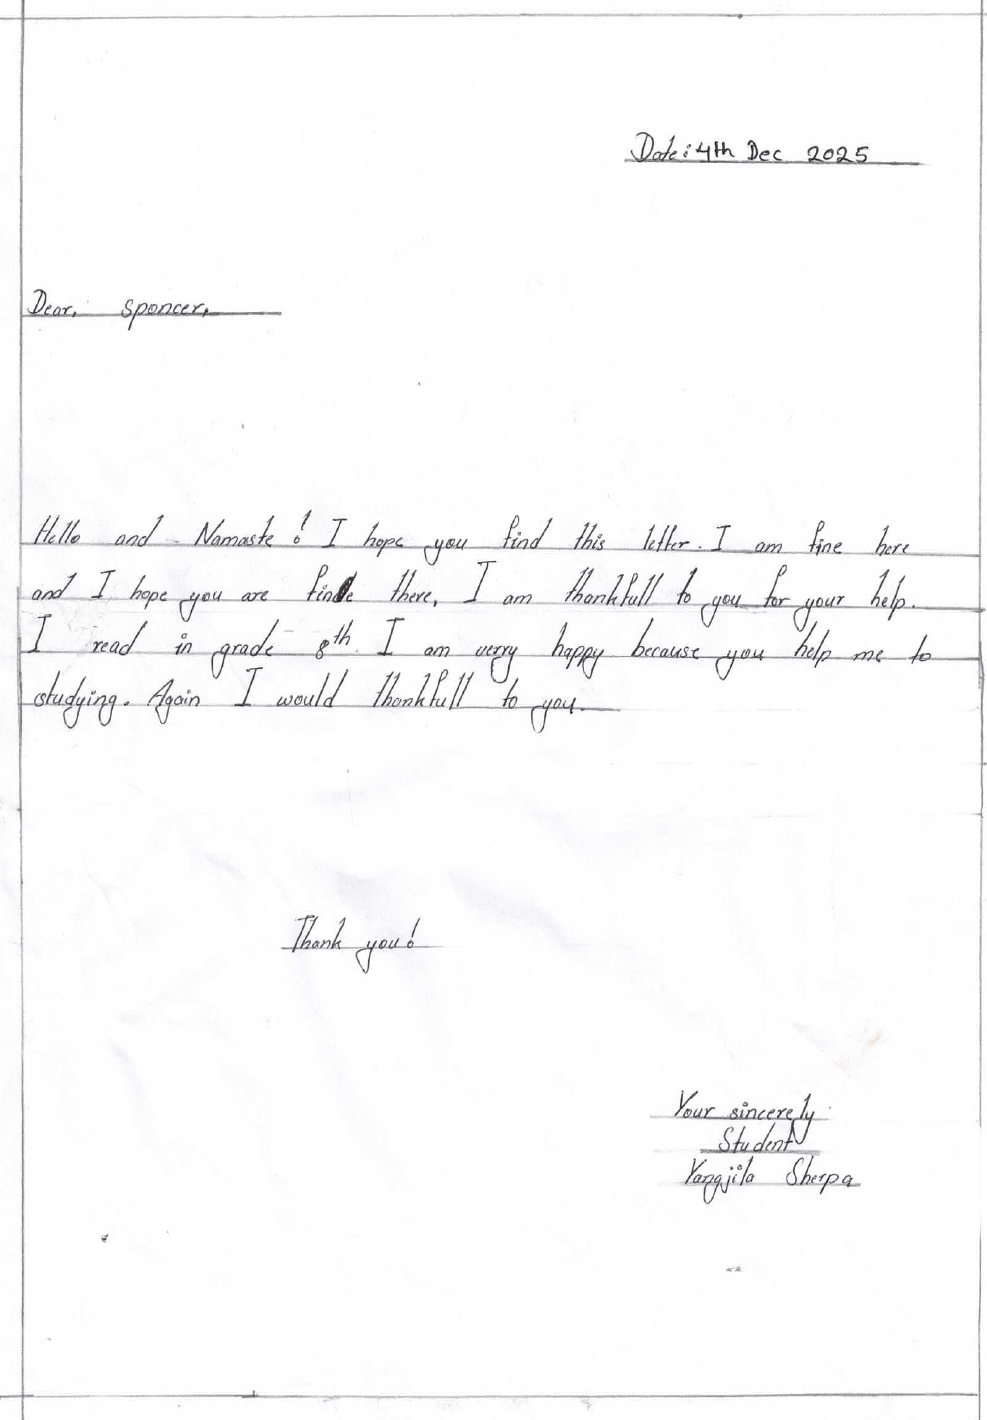 Date: 4th Dec 2025
Dear, Sponcer,
Hello and Namaste! I hope you find this letter. I am fine here
and I hope you are fine there, I am thankfull to you for your help.
I read in grade 8th. I am verry happy because you help me to
studying. Again I would thankfull to you.
Thank you!
Your sincerely
Student
Yangjila Sherpa